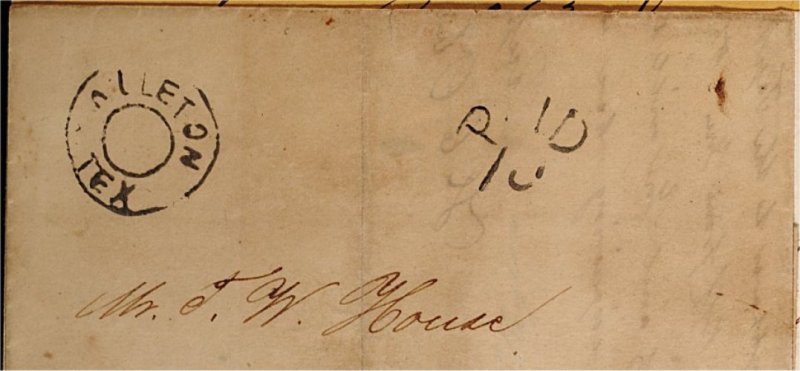 ALLETON
TEX
PAID
10
Mr. T. W. House